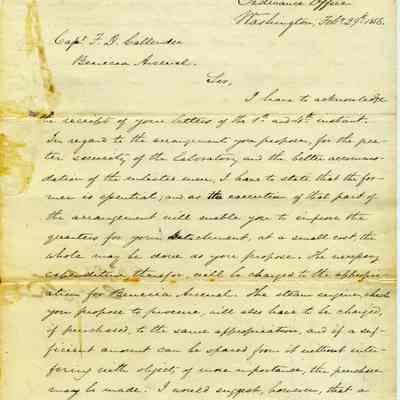 Ordnance Office
Washington, Feb. 29th 1856.
Capt. F. D. Callender
Benecia Arsenal.
Sir,
I have to acknowledge
the receipt of your letters of the 1st and 4th instant.
In regard to the arrangement you propose, for the grea-
ter security of the Laboratory and the better accommo-
dation of the enlisted men, I have to state that the for-
mer is essential; and as the execution of that part of
the arrangement will enable you to improve the
quarters for your detachment, at a small cost, the
whole may be done as you propose. The necessary
expenditure therefor, will be charged to the appropri-
ation for Benecia Arsenal. The steam engine, which
you propose to procure, will also have to be charged,
if purchased, to the same appropriation, and if a suf-
ficient amount can be spared from it without inter-
fering with objects of more importance, the purchase
may be made. I would suggest, however, that a